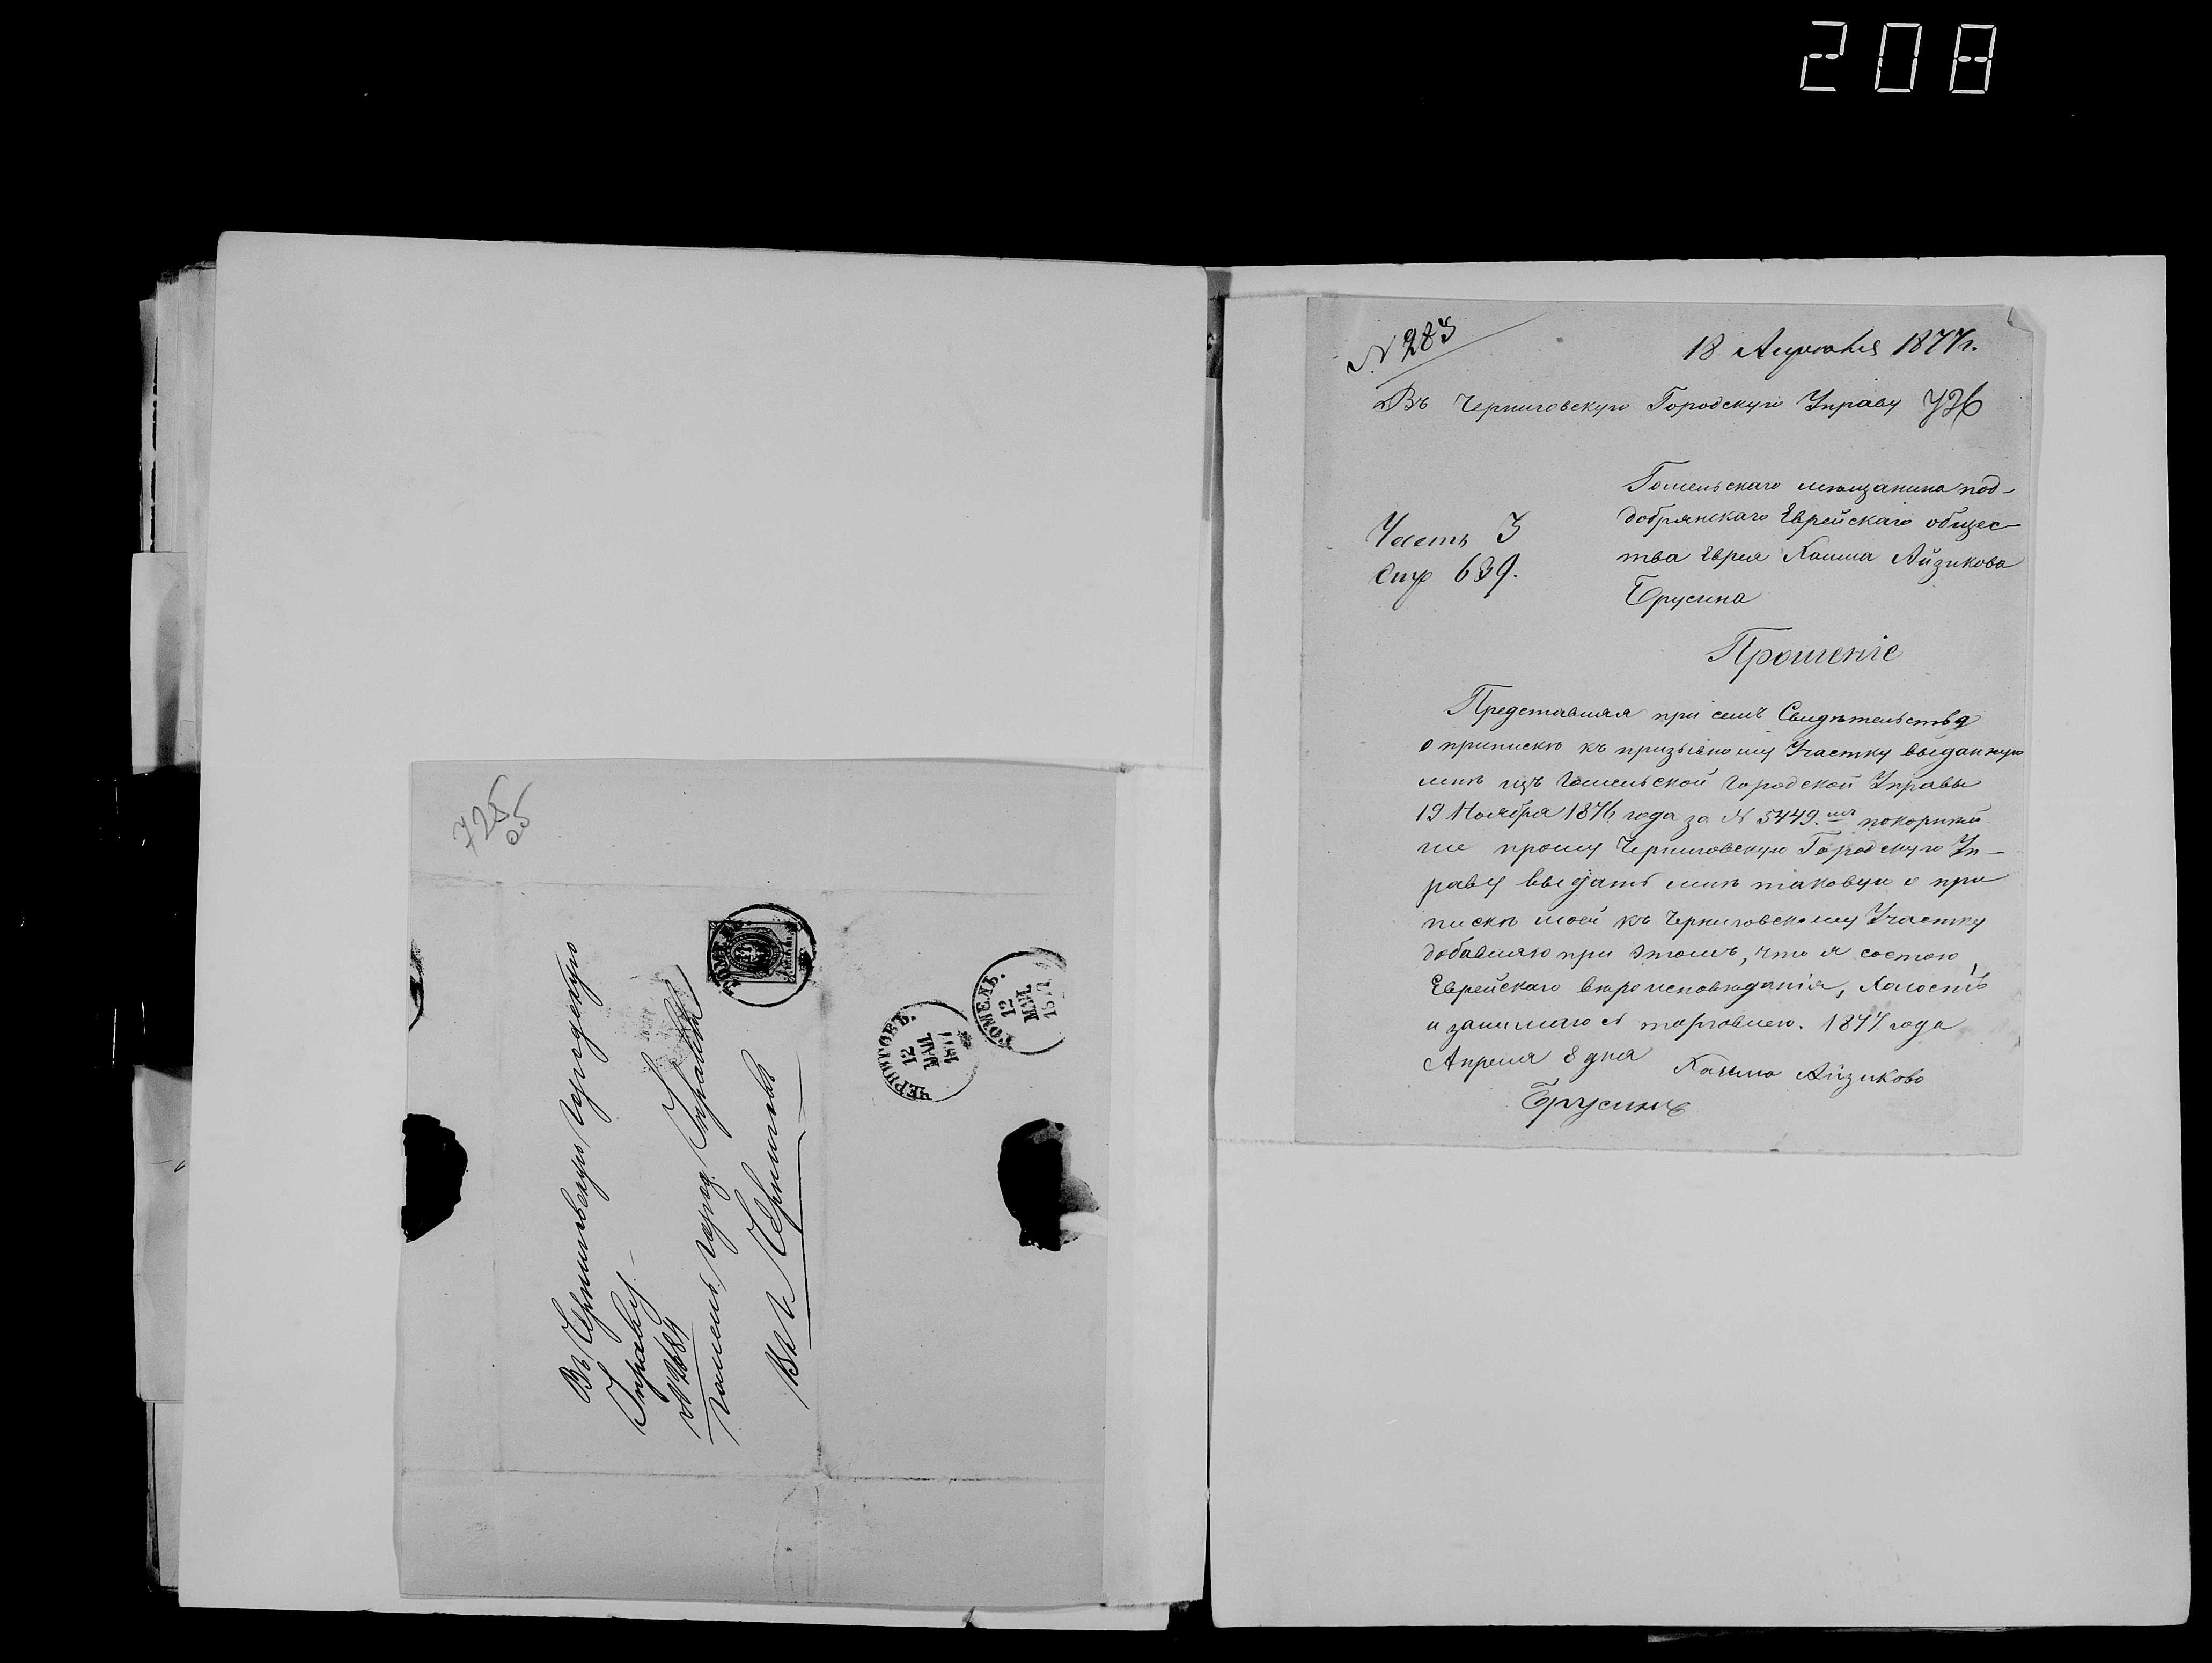 208
725
05
Въ Черниговскую городскую
Управу
№ 2684
гомель, город. Управы
Въ г. Черниговъ
ГОМЕЛЬ.
ЧЕРНИГОВЪ.
12
МАЯ
1877
ГОМЕЛЬ.
12
МАЯ
1877
№ 283
18 Апрѣля 1877 г.
Въ Черниговскую Городскую Управу
Гомельскаго мѣщанина под-
добрянскаго Еврейскаго общес-
тва Еврея Хаима Айзикова
Брусина
Часть 3
Стр 639.
Прошеніе
Представляя при семъ Свидѣтельство
о припискѣ къ призывному Участку выданную
мнѣ изъ Гомельской городской Управы
19 Ноября 1876 года за № 5449. мъ покорнѣй
ше прошу Черниговскую Городскую Уп-
раву выдать мнѣ таковую о при
пискѣ моей къ Черниговскому Участку
добавляю при этомъ, что я состою
Еврейскаго вѣроисповѣданія, Холостъ
и занимаюсь торговлею. 1877 года
Апреля 8 дня Хаимъ Айзиковъ
Брусинъ